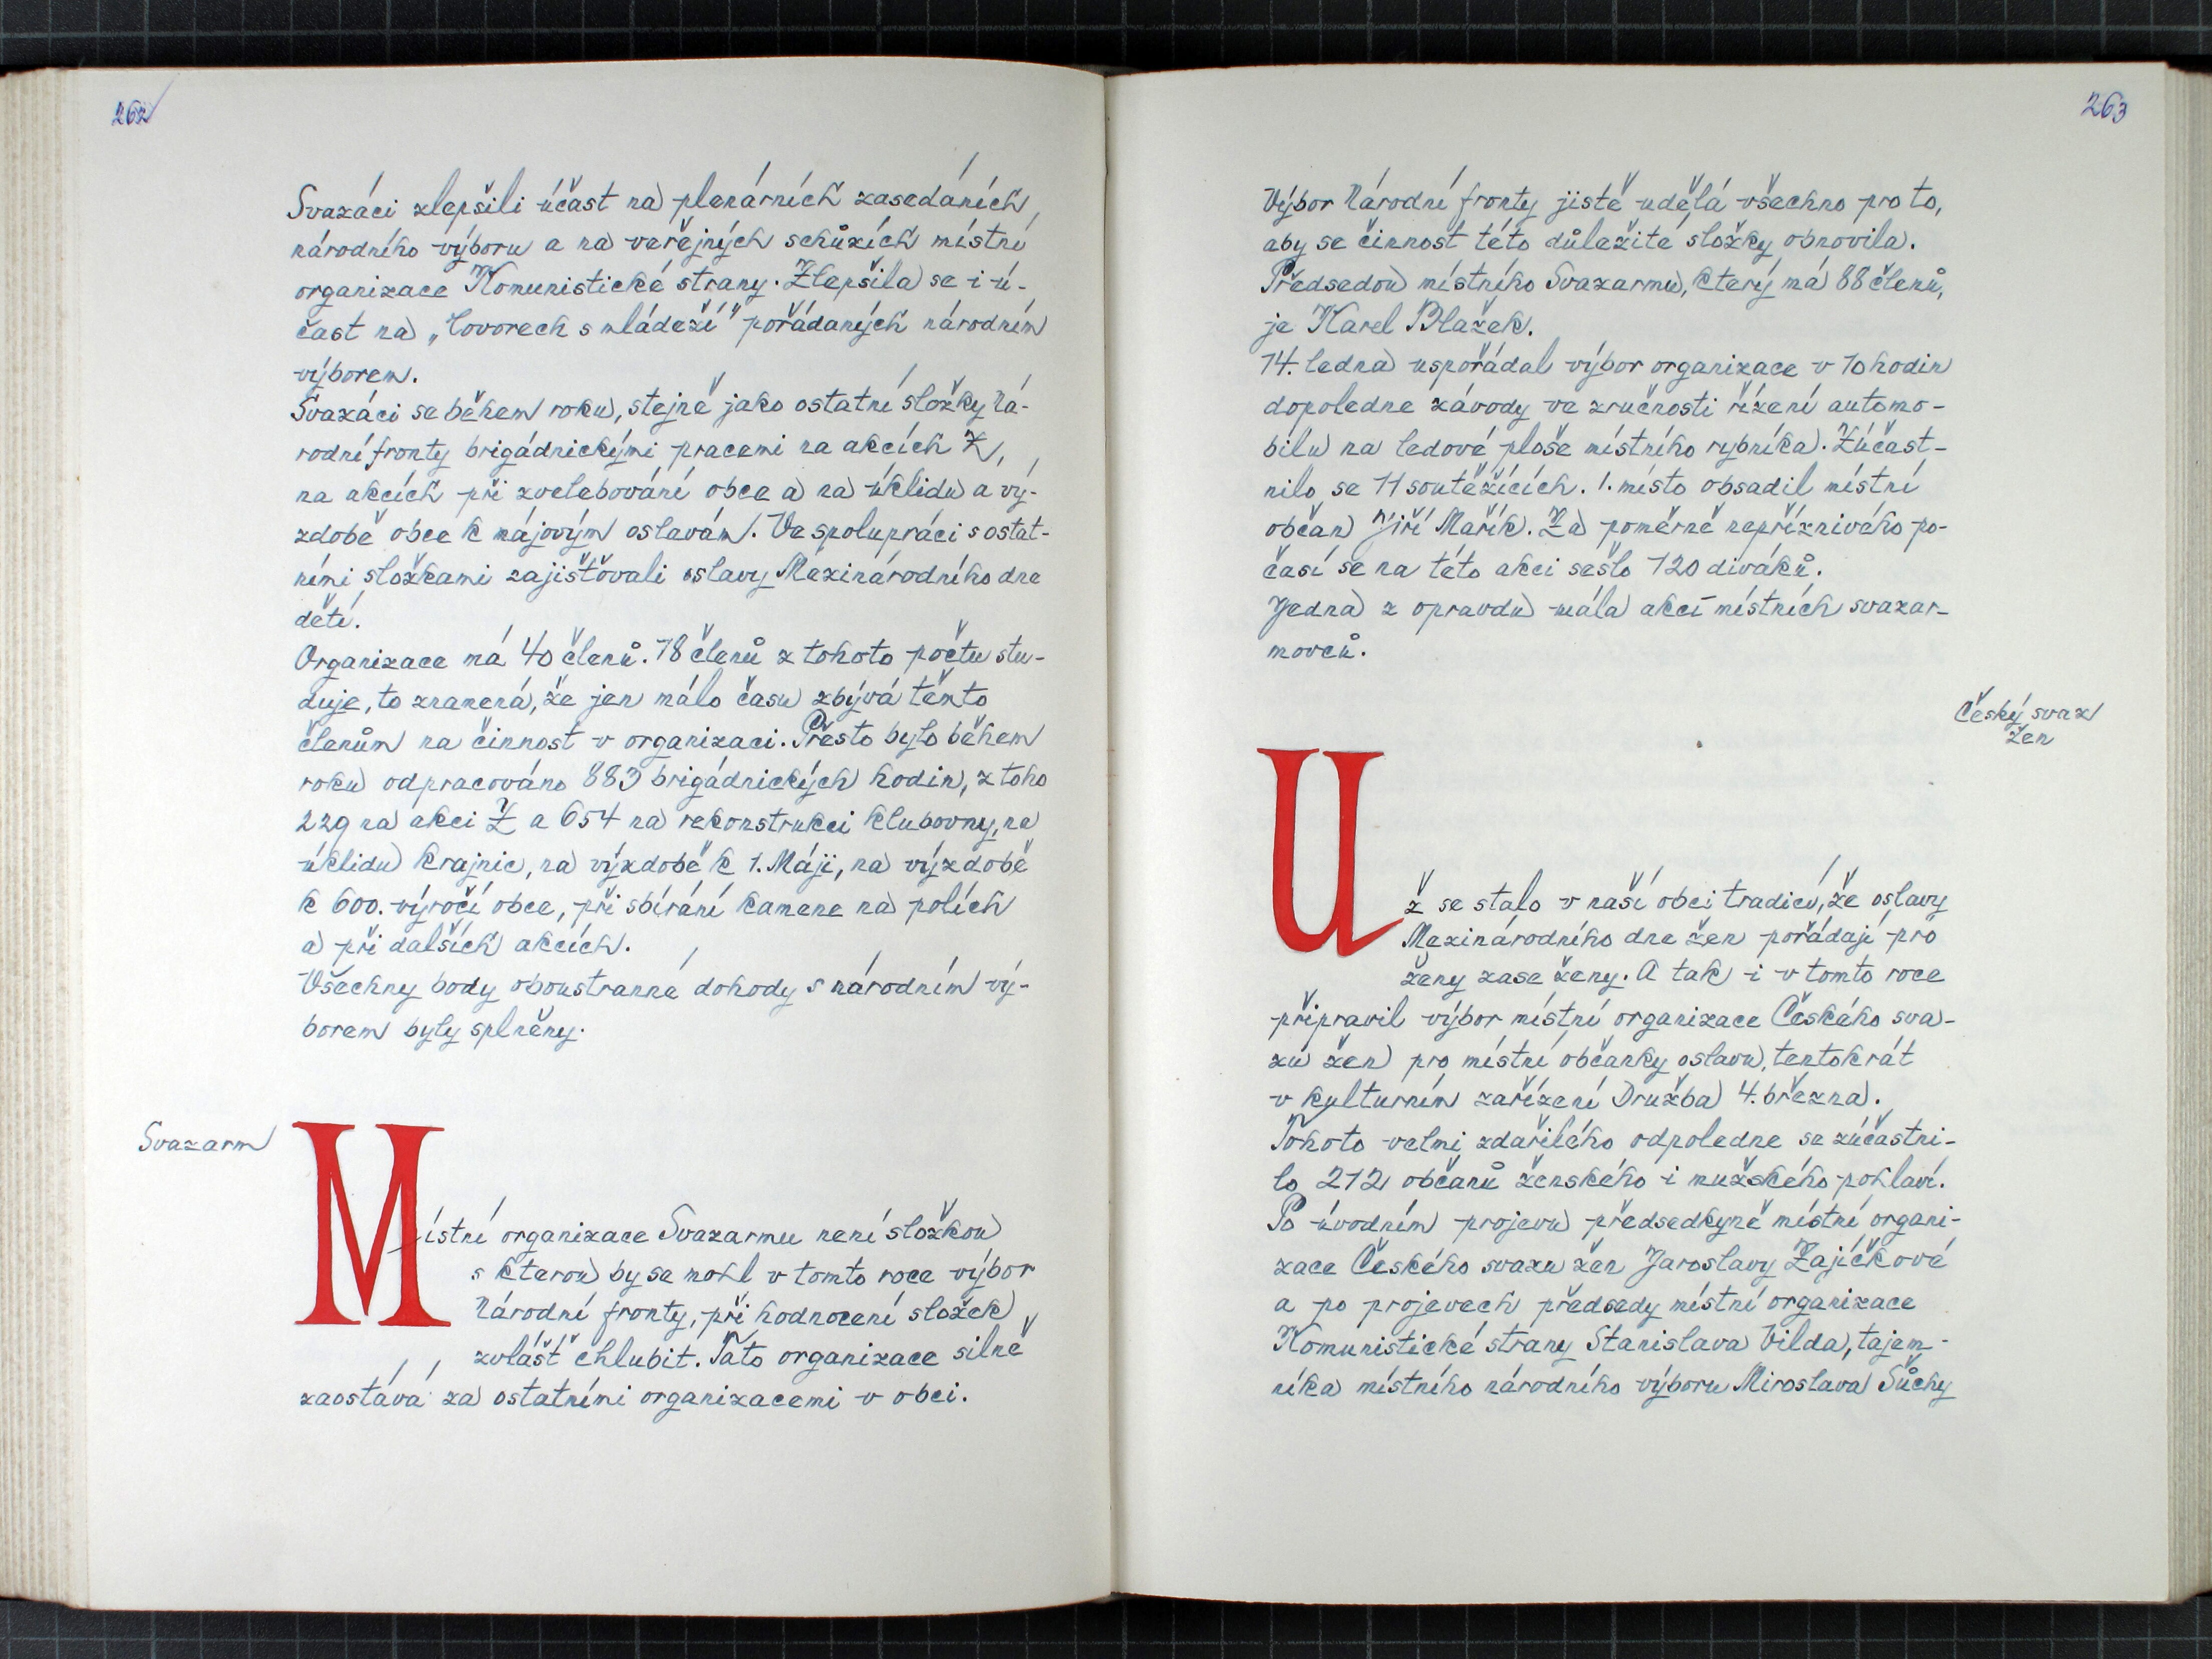 262
Svazáci zlepšili účast na plenárních zasedáních
národního výboru a na veřejných schůzích místní
organizace Komunistické strany. Zlepšila se i ú-
čast na „hovorech s mládeží" pořádaných národním
výborem.
Svazáci se během roku, stejně jako ostatní složky Ná-
rodní fronty brigádnickými pracemi na akcích Z,
na akcích při zvelebování obce a na úklidu a vý-
zdobě obce k májovým oslavám. Ve spolupráci s ostat-
ními složkami zajišťovali oslavy Mezinárodního dne
dětí.
Organizace má 40 členů. 18 členů z tohoto počtu stu-
duje, to znamená, že jen málo času zbývá těmto
členům na činnost v organizaci. Přesto bylo během
roku odpracováno 883 brigádnických hodin, z toho
229 na akci Z a 654 na rekonstrukci klubovny, na
úklidu krajnic, na výzdobě k 1. Máji, na výzdobě
k 600. výročí obce, při sbírání kamene na polích
a při dalších akcích.
Všechny body oboustranné dohody s národním vý-
borem byly splněny.
Svazarm
Místní organizace Svazarmu není složkou
s kterou by se mohl v tomto roce výbor
Národní fronty, při hodnocení složek
zvlášť chlubit. Tato organizace silně
zaostává za ostatními organizacemi v obci.
263
Výbor Národní fronty jistě udělá všechno pro to,
aby se činnost této důležité složky obnovila.
Předsedou místního Svazarmu, který má 88 členů,
je Karel Blažek.
14. ledna uspořádal výbor organizace v 10 hodin
dopoledne závody ve zručnosti řízení automo-
bilu na ledové ploše místního rybníka. Zúčast-
nilo se 11 soutěžících. 1. místo obsadil místní
občan Jiří Mařík. Za poměrně nepříznivého po-
časí se na této akci sešlo 120 diváků.
Jedna z opravdu mála akcí místních svazar-
movců.
Český svaz
žen
Už se stalo v naší obci tradicí, že oslavy
Mezinárodního dne žen pořádají pro
ženy zase ženy. A tak i v tomto roce
připravil výbor místní organizace Českého sva-
zu žen pro místní občanky oslavu, tentokrát
v kulturním zařízení Družba 4. března.
Tohoto velmi zdařilého odpoledne se zúčastni-
lo 212 občanů ženského i mužského pohlaví.
Po úvodním projevu předsedkyně místní organi-
zace Českého svazu žen Jaroslavy Zajíčkové
a po projevech předsedy místní organizace
Komunistické strany Stanislava Vilda, tajem-
níka místního národního výboru Miroslava Šůchy